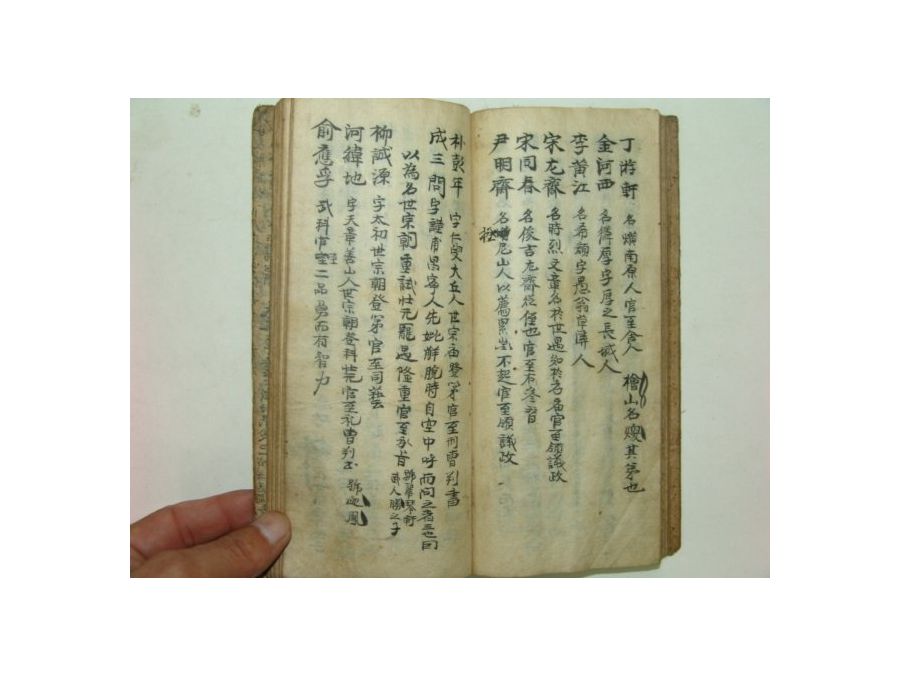 丁游軒 名熿南原人官至舍人 檜山名煥其第也
金河西 名麟厚字厚之長城人
李黃江 名希顔字愚翁草溪人
宋尤齋 名時烈文章名於世遇知於名官至領議政
宋同春 名俊吉尤齋從侄也官至右參贊
尹明齋 名拯尼山人以薦累坐不起官至領議政
朴彭年 字仁叟大丘人世宗庙登第官至刑曹判書
成三問 字謹甫昌寧人先妣解脫時自空中呼而問之者三也因
以爲名世宗朝重試壯元罷遇隆重官至承旨 武人勝之子
柳誠源 字太初世宗朝登第官至司藝
河緯地 字天章善山人世宗朝登科壯元官至礼曺判書
俞應孚 武科官至二品勇而有智力